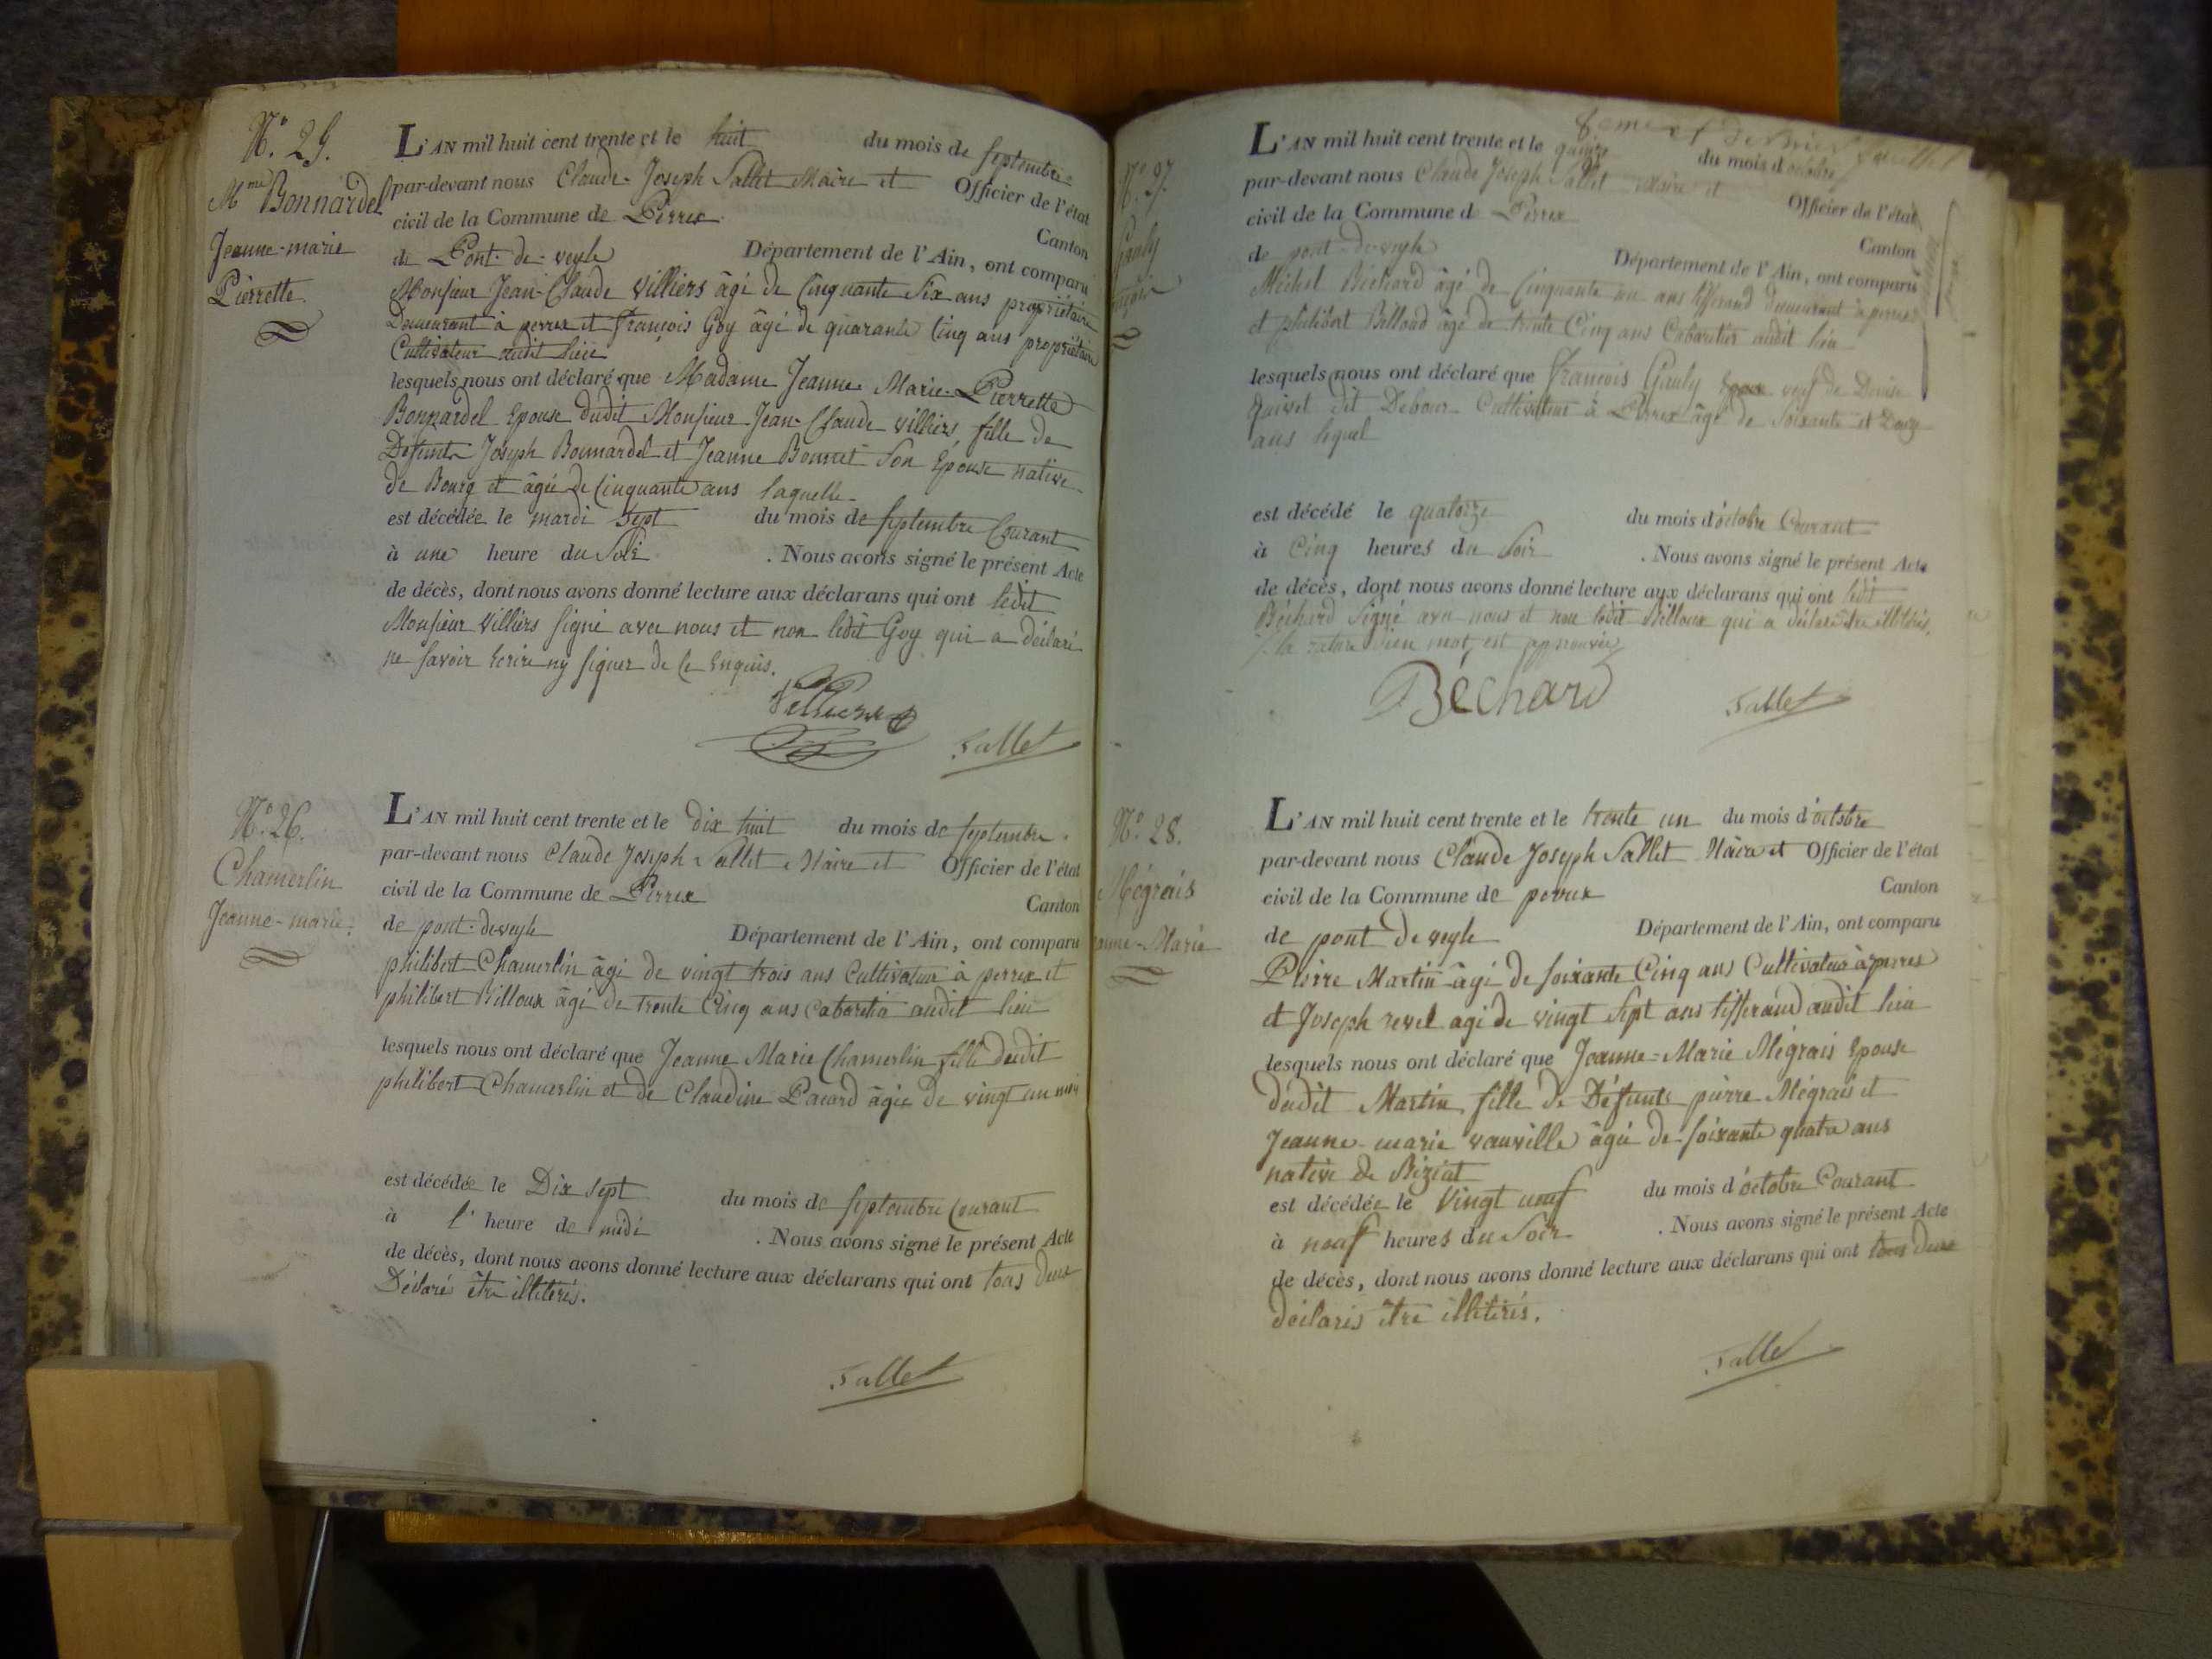 N.° 25.
Mme Bonnardel
Jeanne-marie
Pierrette.
L'AN mil huit cent trente et le huit du mois de septembre
par-devant nous Claude-Joseph Sallet Maire et Officier de l'état
civil de la Commune de Perrex Canton
de Pont-de-veyle Département de l'Ain, ont comparu
Monsieur Jean-Claude Villiers âgé de Cinquante Six ans propriétaire
Demeurant à perrex et françois Goy âgé de quarante Cinq ans propriétaire
Cultivateur audit lieu
lesquels nous ont déclaré que Madame Jeanne Marie-Pierrette
Bonnardel Epouse dudit Monsieur Jean-Claude Villiers, fille de
Defunts Joseph Bonnardel et Jeanne Bonnet Son Epouse native
de Bourg et âgée de Cinquante ans laquelle
est décédée le mardi Sept du mois de septembre Courant
à une heure du Soir . Nous avons signé le présent Acte
de décès, dont nous avons donné lecture aux déclarans qui ont ledit
Monsieur Villiers signé avec nous et non ledit Goy qui a déclaré
ne savoir Ecrire ny signer de ce Enquis.
Villiers Sallet
N.° 26.
Chamerlin
Jeanne-marie.
L'AN mil huit cent trente et le dix huit du mois de septembre
par-devant nous Claude Joseph Sallet Maire et Officier de l'état
civil de la Commune de Perrex Canton
de pont-deveyle Département de l'Ain, ont comparu
philibert Chamerlin âgé de vingt trois ans Cultivateur à perrex et
philibert Billoux âgé de trente Cinq ans Cabaretier audit lieu
lesquels nous ont déclaré que Jeanne Marie Chamerlin fille dudit
philibert Chamerlin et de Claudine Pacard âgée de vingt un mois
est décédée le Dix Sept du mois de septembre Courant
à l' heure de midi . Nous avons signé le présent Acte
de décès, dont nous avons donné lecture aux déclarans qui ont tous deux
Déclaré être illiterés.
Sallet
N.° 27.
Gauly
L'AN mil huit cent trente et le quinze du mois d'octobre
par-devant nous Claude Joseph Sallet Maire et Officier de l'état
civil de la Commune de Perrex Canton
de pont-de-veyle Département de l'Ain, ont comparu
Michel Béchard âgé de Cinquante un ans tisserand demeurant à perrex
et philibert Billoud âgé de trente Cinq ans Cabaretier audit lieu
lesquels nous ont déclaré que François Gauly veuf de Denise
quivet dit Debour Cultivateur à Perrex âgé de Soixante et Douze
ans lequel
est décédé le quatorze du mois d'octobre Courant
à Cinq heures du Soir . Nous avons signé le présent Acte
de décès, dont nous avons donné lecture aux déclarans qui ont ledit
Béchard Signé avec nous et non ledit Billoux qui a déclaré être illitérés.
la rature d'un mot est approuvée
Béchard Sallet
N.° 28.
Mégrais
Jeanne-Marie
L'AN mil huit cent trente et le trente un du mois d'octobre
par-devant nous Claude Joseph Sallet Maire et Officier de l'état
civil de la Commune de perrex Canton
de pont de veyle Département de l'Ain, ont comparu
Pierre Martin âgé de soixante Cinq ans Cultivateur à perrex
et Joseph revel agé de vingt Sept ans tisserand audit lieu
lesquels nous ont déclaré que Jeanne-Marie Mégrais Epouse
dudit Martin, fille de Défunts pierre Mégrais et
Jeanne-marie vauville âgée de soixante quatre ans
native de Biziat
est décédée le Vingt neuf du mois d'octobre Courant
à neuf heures du Soir . Nous avons signé le présent Acte
de décès, dont nous avons donné lecture aux déclarans qui ont tous deux
déclarés être illitérés.
Sallet